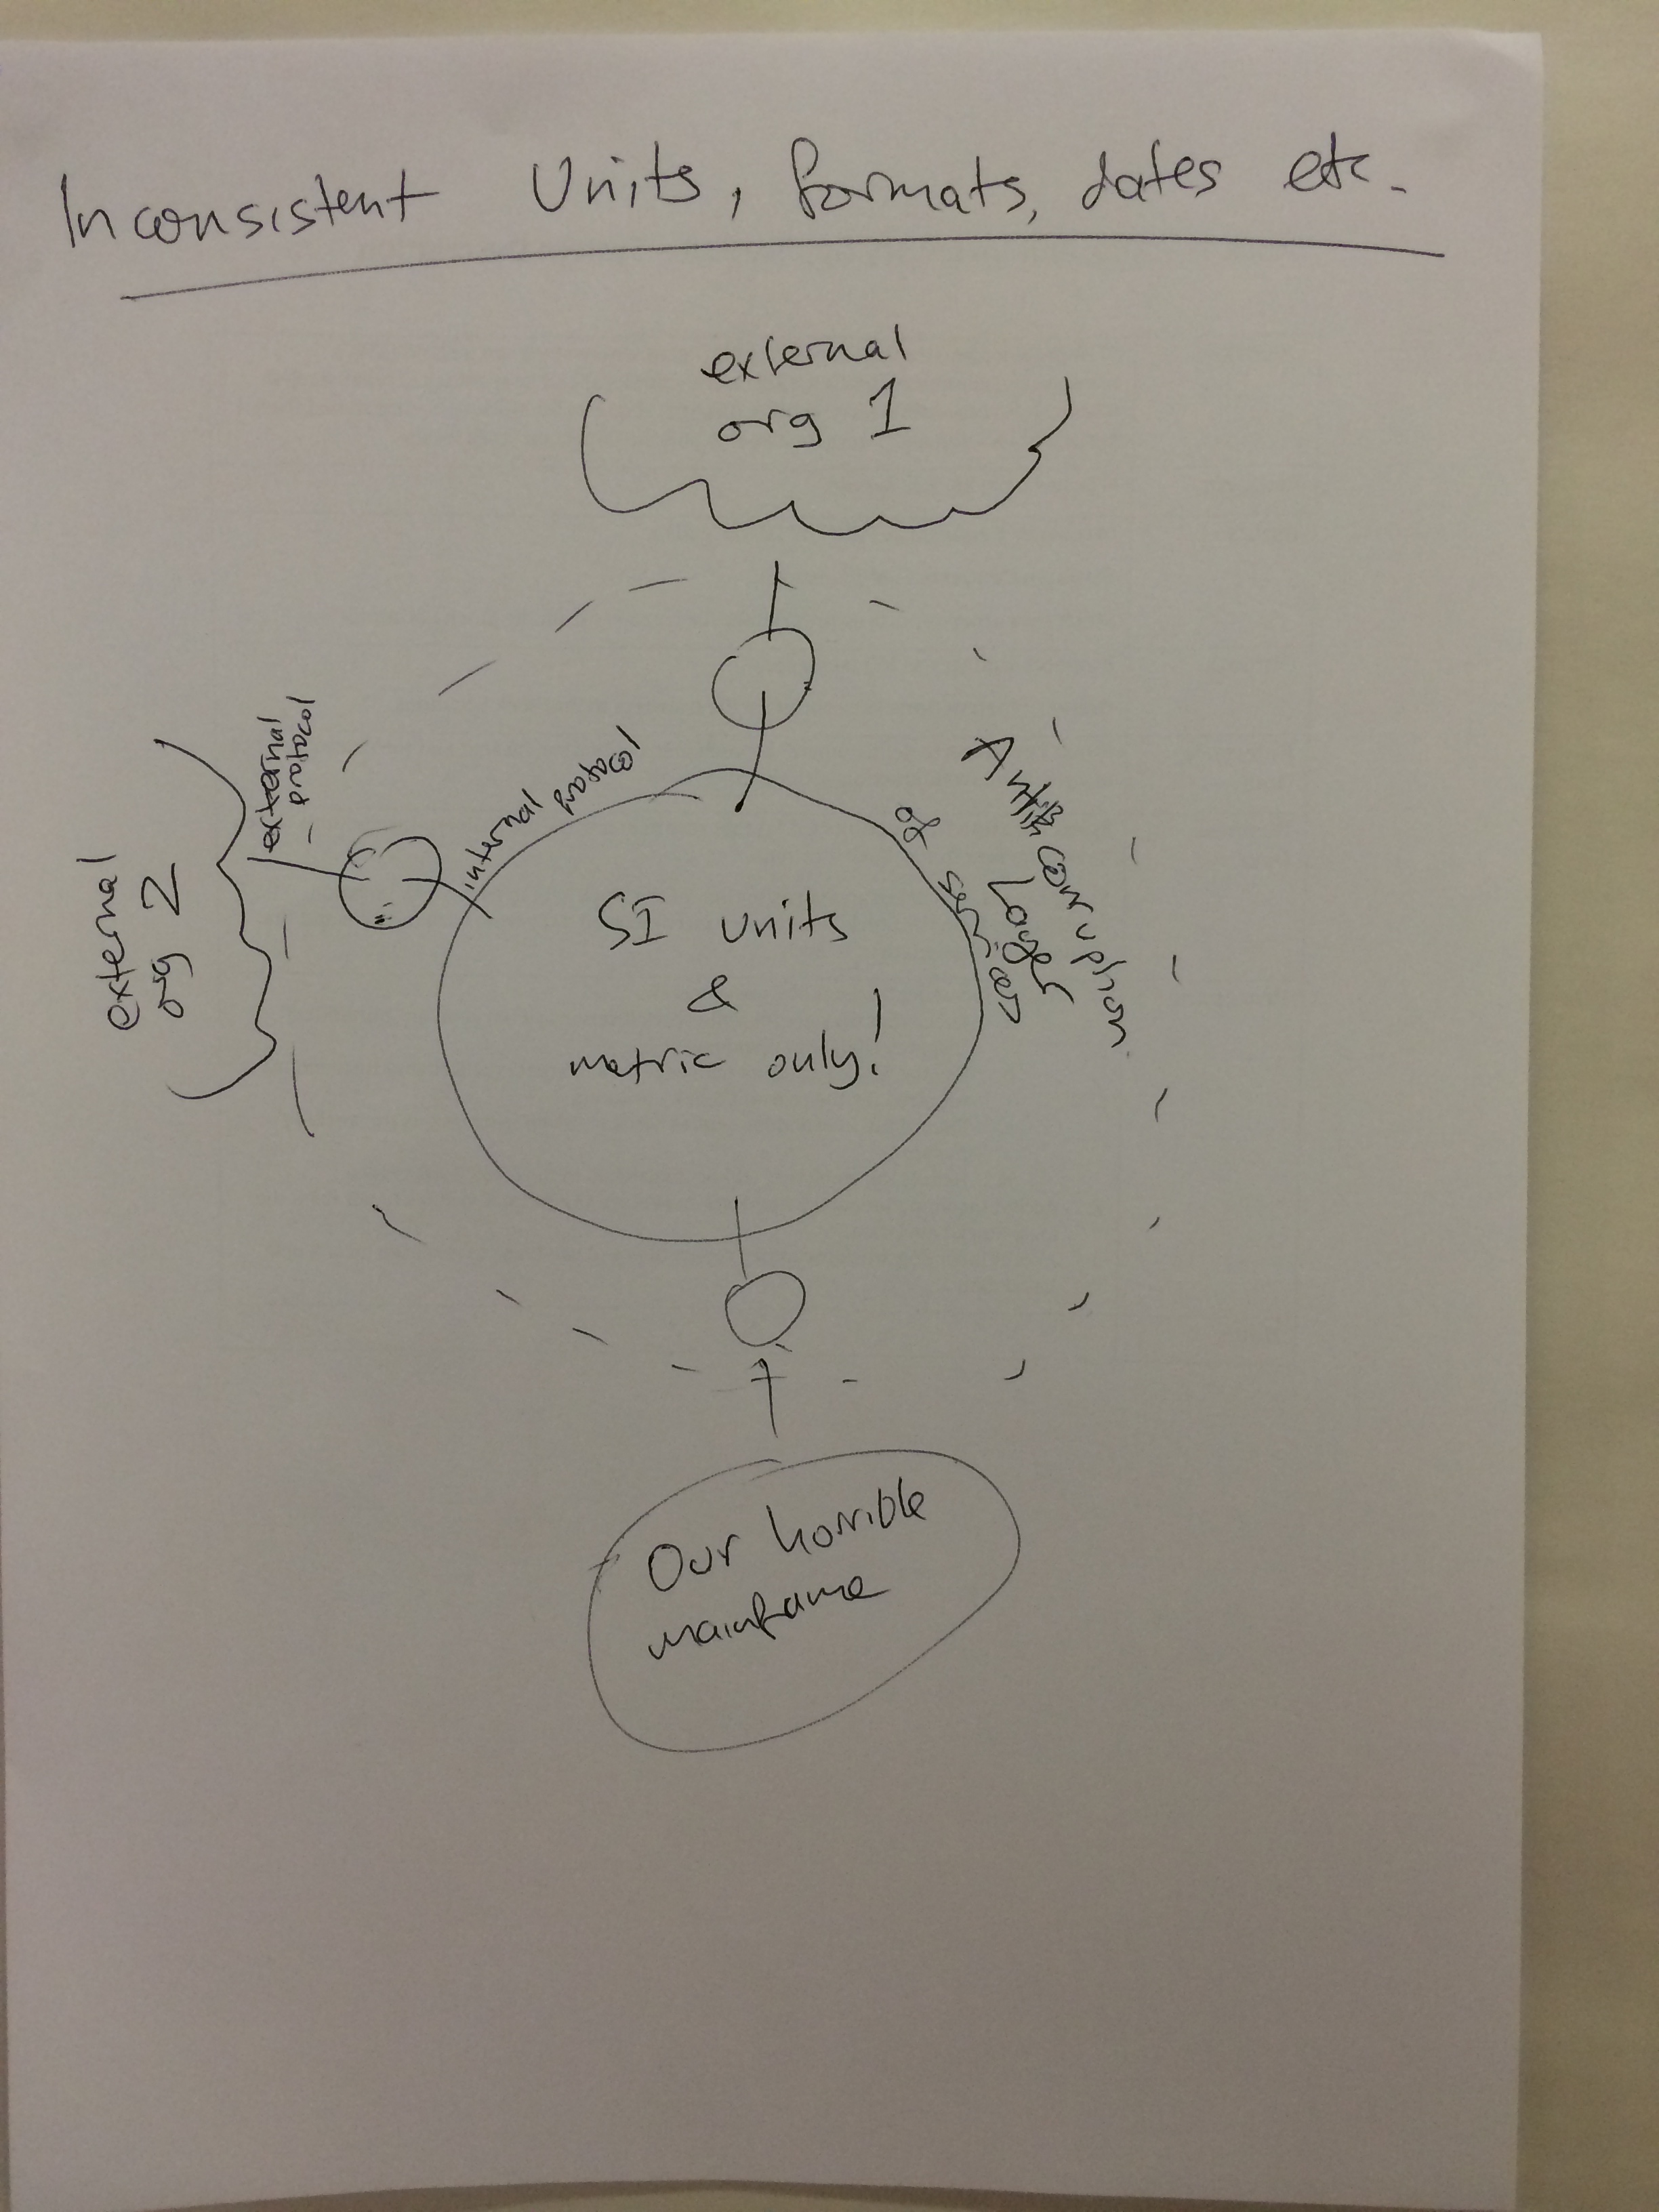 Inconsistent Units, formats, dates etc.
external
org 1
external
protocol
internal
external
org 2
Anti corruption
Layer
of services
SI units
&
metric only!
Our horrible
mainframe